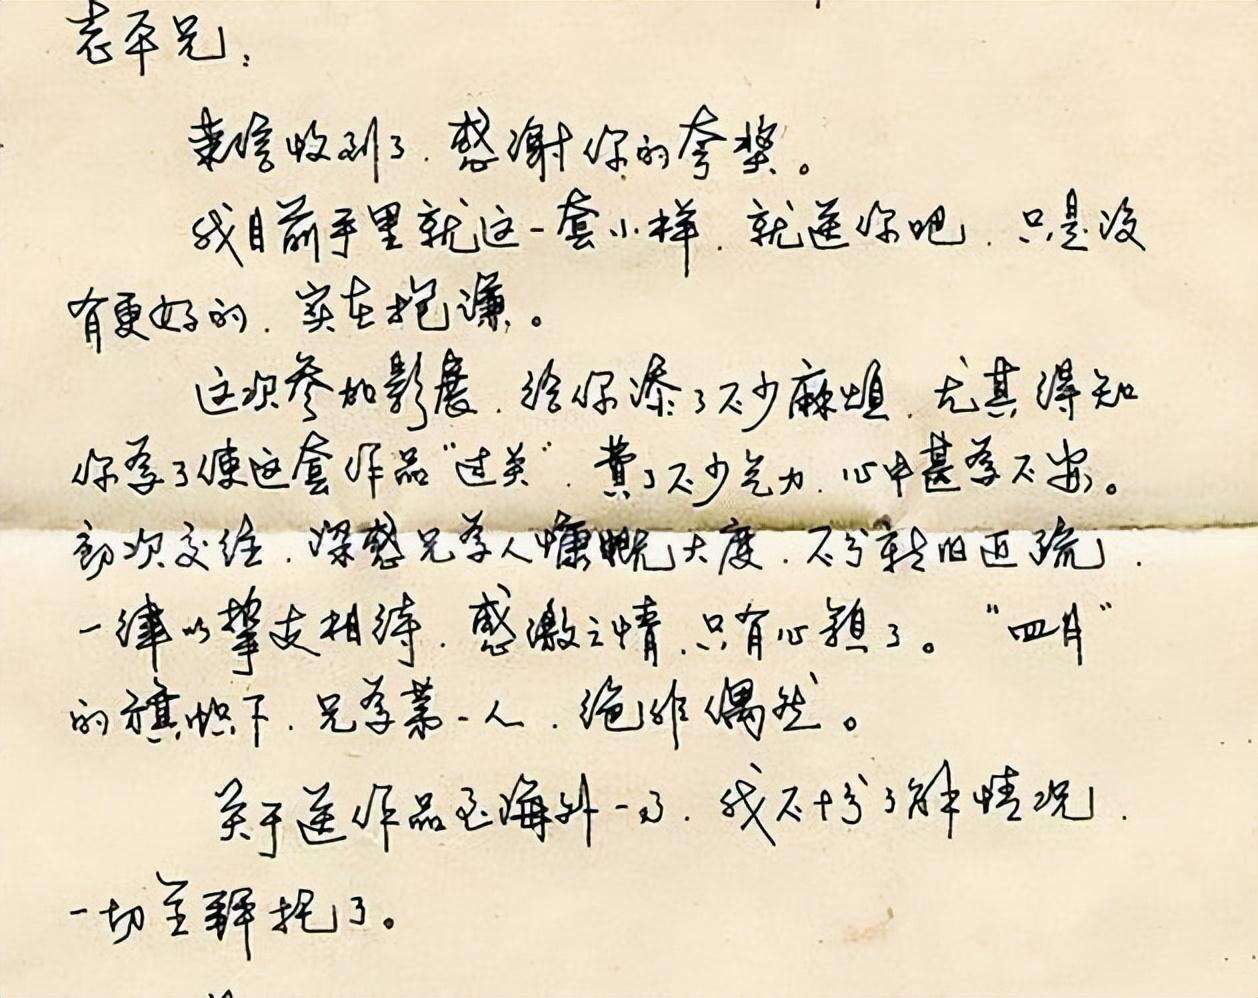 志平兄：
来信收到了．感谢你的夸奖。
我目前手里就这一套小样．就送你吧．只是没
有更好的．实在抱谦。
这次参加影展．给你添了不少麻烦．尤其得知
你为了使这套作品“过关”．费了不少气力．心中甚为不安。
几次交往．深感兄为人慷慨大度．不分新旧近疏．
一律以挚友相待．感激之情．只有心领了。“四月”
的旗帜下．兄为第一人．绝非偶然。
关于送作品至海外一事．我不十分了解情况．
一切全拜托了。